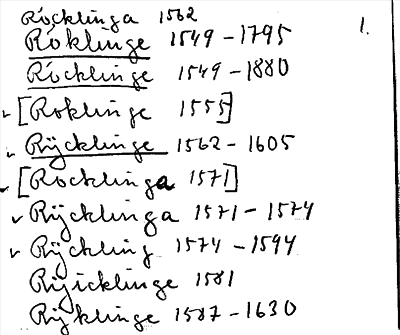 Röcklinga 1562
Röklinge 1549-1795 1.
Röcklinge 1549-1880
[Roklinge 1555]
Rÿcklinge 1562-1605
[Rocklinga 1571]
Rÿcklinga 1571-1574
Rÿckling 1574-1594
Rÿicklinge 1581
Rÿklinge 1587-1630